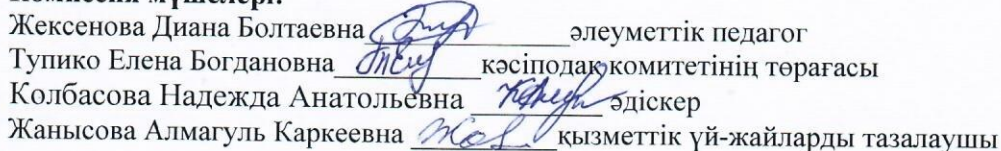 Комиссия мүшелері:
Жексенова Диана Болтаевна ______________әлеуметтік педагог
Тупико Елена Богдановна___________кәсіподақ комитетінің төрағасы
Колбасова Надежда Анатольевна __________әдіскер
Жанысова Алмагуль Каркеевна ___________қызметтік үй-жайларды тазалаушы